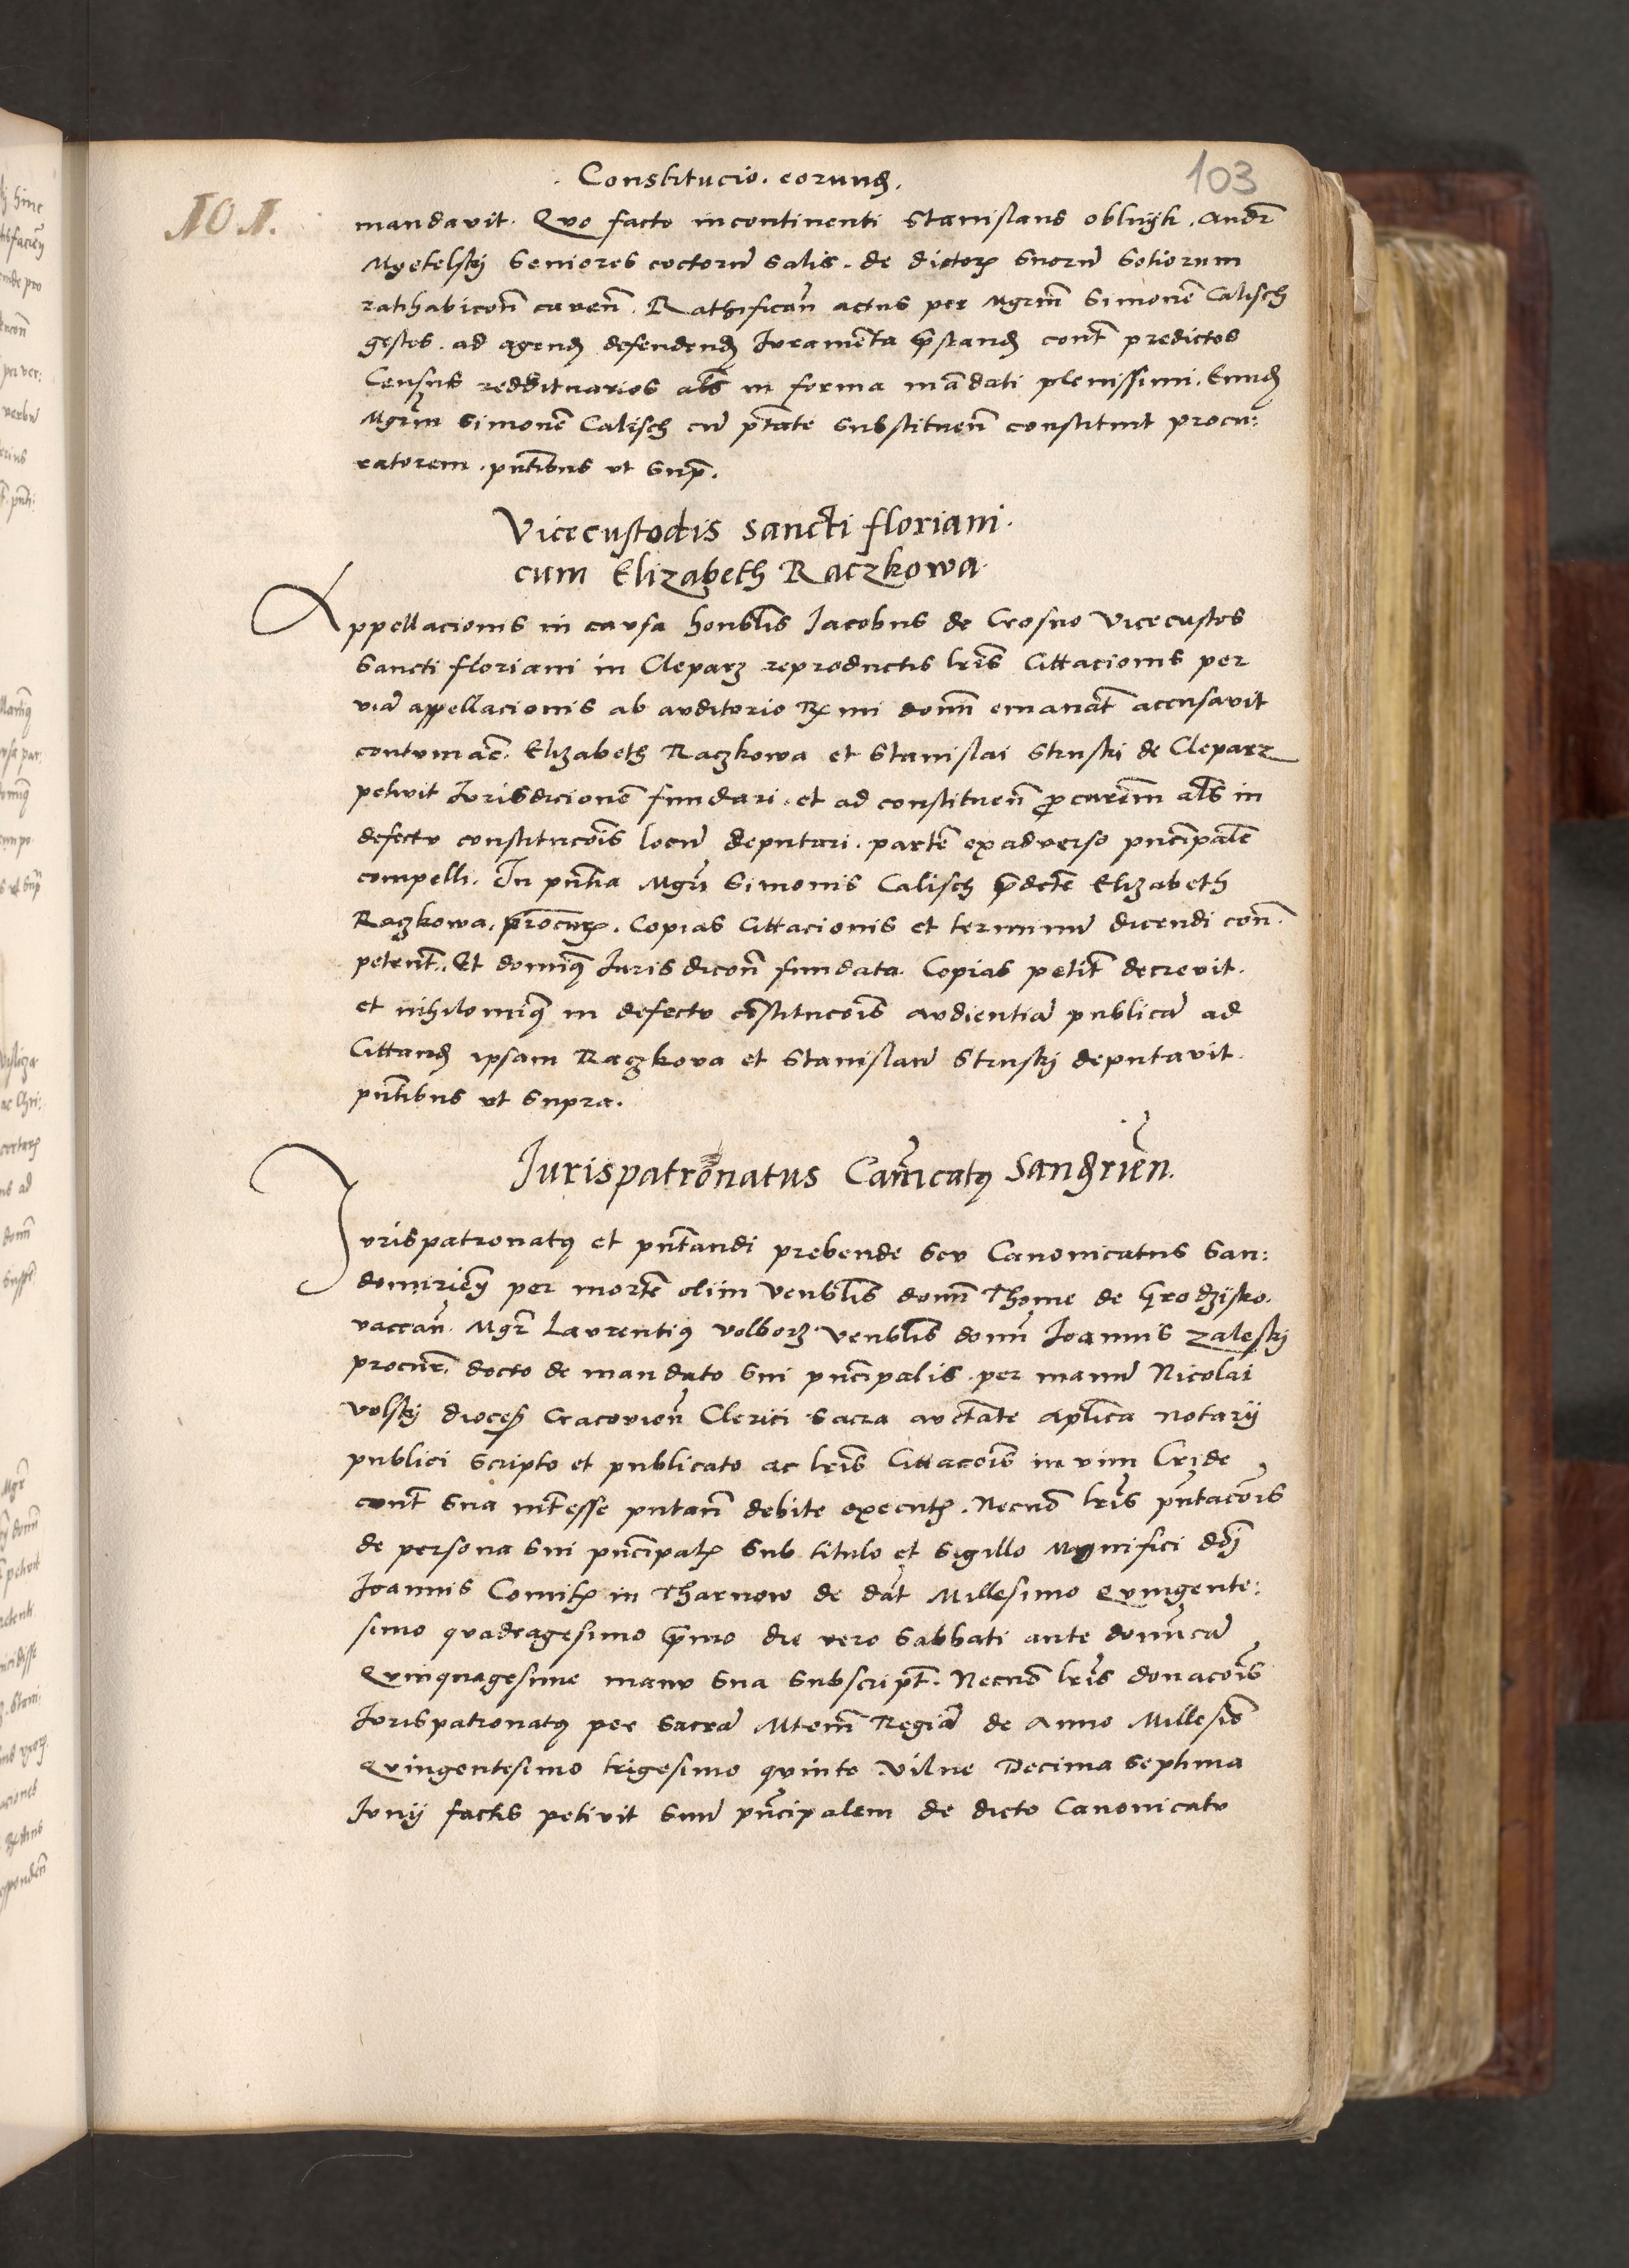 103
101.
Constitucio. eorund.
mandavit. Quo facto incontinenti Stanislaus Obluyk. Andr̃
Myetelskj Seniores coctorũ Salis. de dictorꝝ Suorũ Sotiorum
ratihabicoñ caveñ. Rathificañ actus per Mgrm̃ Simonẽ Calisch
gestos. ad agend defendend Juramenta p̃stand cont̃ predictos
Census reddituarios als̃ in forma mãdati plenissimi. Eund
Mgrm̃ Simonẽ Calisch cũ p̃tate Substitueñ constituit procu:
ratorem. pñtibus ut Sup̃.
Vicecustodis Sancti floriani.
cum Elizabeth Raczkowa.
Appellacionis in causa honblis̃ Jacobus de Crosno Vicecustos
Sancti floriani in Clepaꝛz reproductis lr̃is Cittacionis per
viã appellacionis ab auditorio Rx̃mi domñ emanat̃ accusavit
contumãc. Elizabeth Raczkowa et Stanislai Struskj de Cleparz
petivit Jurisdicionẽ fundari. et ad constitueñ procurem̃ als̃ in
defectu constitucõis locũ deputari. partẽ exadverso pñcipalẽ
compelli. In pñtia Mgrĩ Simonis Calisch p̃dctẽ Elizabeth
Raczkowa. procurꝝ. Copias Cittacionis et terminũ dicendi con̄.
petent̃. Et domiñꝯ Jurisdicoñ fundata Copias petit̃ decrevit.
et nihilomiñꝯ in defectu cõstitucõis audientiã publicã ad
Cittand ipsam Raczkova et Stanislaũ Struskj deputavit.
pñtibus ut Supra.
Jurispatronatus Cañicatꝯ Sandrieñ.
Jurispatronatꝯ et pñtandi prebende Seu Canonicatus San:
domirieñ per mortẽ olim Venblis̃ domñ Thome de Grodzisko.
vaccañ. Mgr̃ Laurentiꝯ Volborz. Venblis̃ domñ Joannis Zaleskj
procur̃. docto de mandato Sui pñcipalis. per manũ Nicolai
Volskj dioceß Cracovieñ Clerici Sacra auctate aplica Notarij
publici Scripto et publicato ac lr̃is Cittacõis in vim Cride
cont̃ Sua int̃esse putañ debite executꝝ. Necnõ lr̃is pñtacõis
de persona Sui pñcipalꝝ Sub titulo et Sigillo Magnifici dñj
Joannis Comitꝝ in Tharnow de dat̃ Millesimo Quingente:
simo quadragesimo p̃mo die vero Sabbati ante domĩcã
Quinquagesime manu Sua Subscript̃. Necnõ lr̃is donacõis
Jurispatronatꝯ per Sacrã Mtem̃ Regiã de Anno Millesiõ
Quingentesimo trigesimo quinto Vilne Decima Septima
Junij factis petivit Suũ pñcipalem de dicto Canonicatu